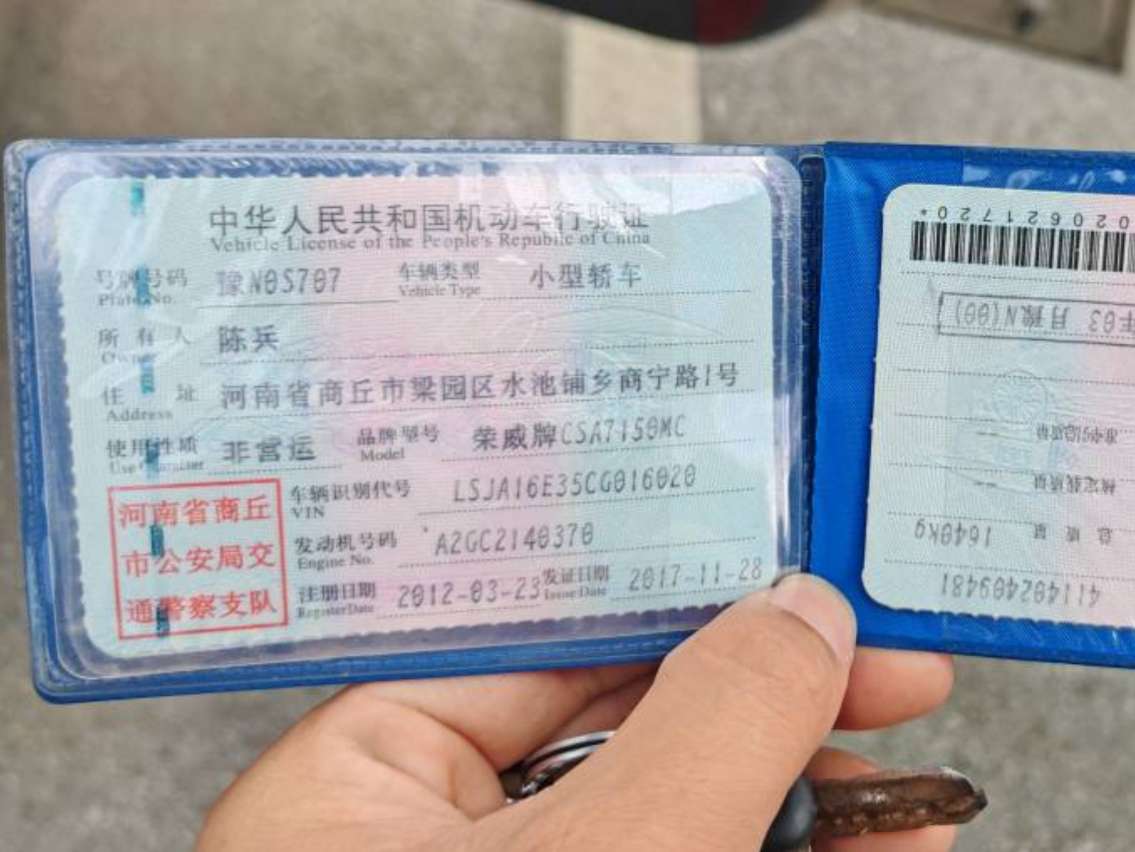 中华人民共和国机动车行驶证
Vehicle License of the People's Republic of China
号牌号码 豫N0S707 车辆类型 小型轿车
Plate No. Vehicle Type
所有人 陈兵
Owner
住址 河南省商丘市梁园区水池铺乡商宁路1号
Address
使用性质 非营运 品牌型号 荣威牌CSA7150MC
Use Character Model
车辆识别代号 LSJA16E35CG016020
VIN
发动机号码 A2GC2140370
Engine No.
注册日期 2012-03-23 发证日期 2017-11-28
Register Date Issue Date
河南省商丘
市公安局交
通警察支队
411402409481
总质量 1640kg
核定载质量
准牵引总质量
年03月豫N(00)
020621720*